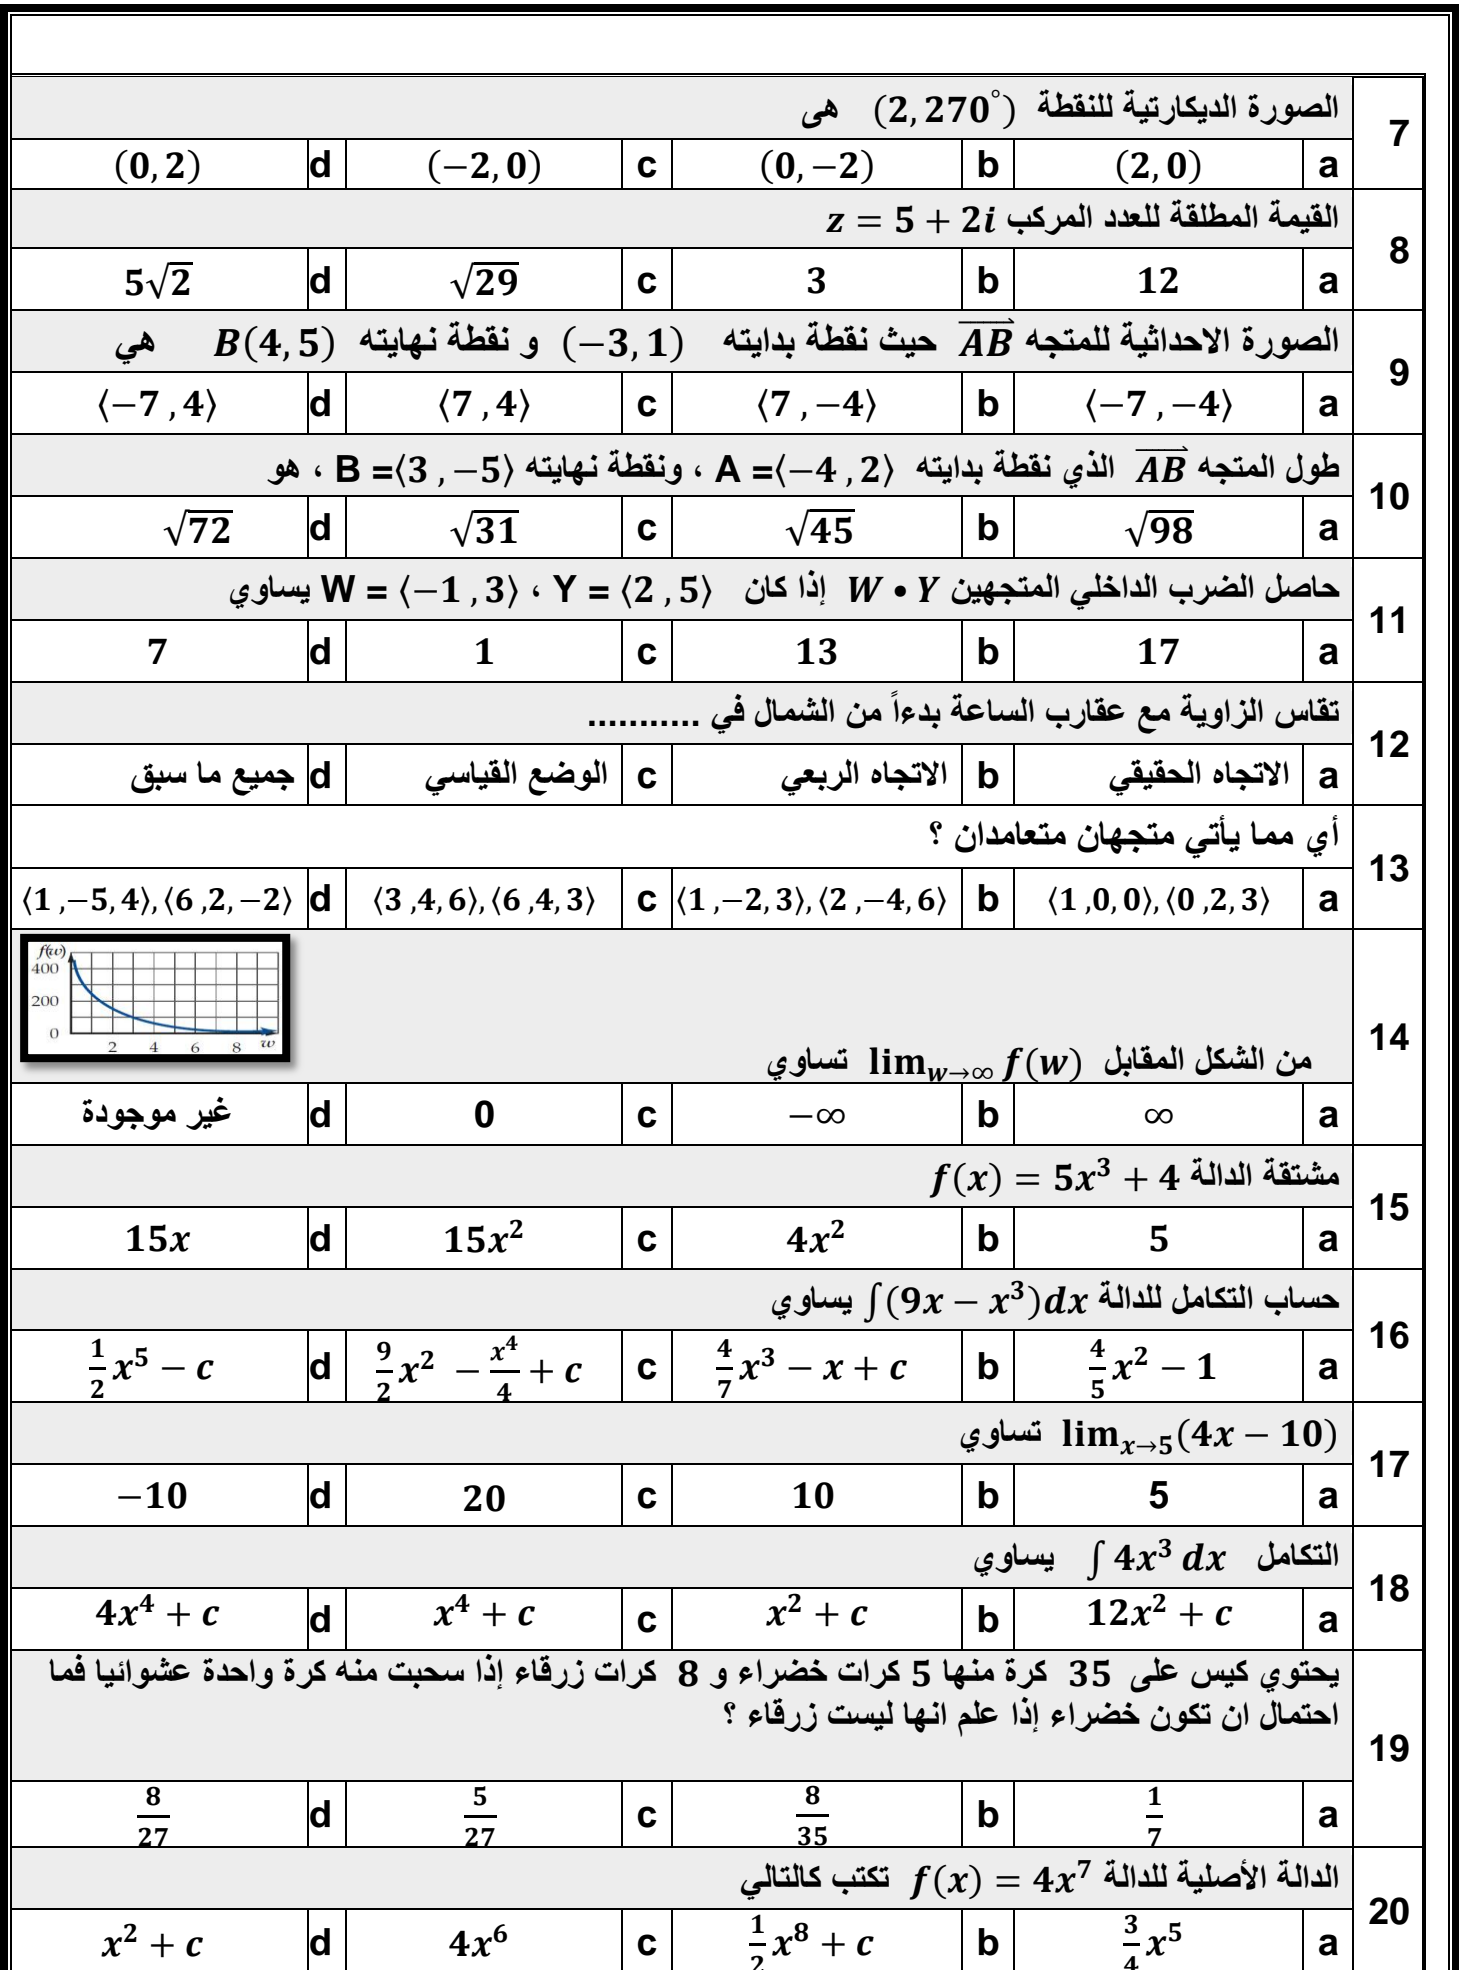 7 الصورة الديكارتية للنقطة (2, 270°) هى
a (2, 0) b (0, −2) c (−2, 0) d (0, 2)
8 القيمة المطلقة للعدد المركب z = 5 + 2i
a 12 b 3 c √29 d 5√2
9 الصورة الاحداثية للمتجه AB حيث نقطة بدايته (−3, 1) و نقطة نهايته B(4, 5) هي
a ⟨−7 , −4⟩ b ⟨7 , −4⟩ c ⟨7 , 4⟩ d ⟨−7 , 4⟩
10 طول المتجه AB الذي نقطة بدايته A =⟨−4 , 2⟩ ، ونقطة نهايته B =⟨3 , −5⟩ ، هو
a √98 b √45 c √31 d √72
11 حاصل الضرب الداخلي المتجهين W • Y إذا كان W = ⟨−1 , 3⟩ ، Y = ⟨2 , 5⟩ يساوي
a 17 b 13 c 1 d 7
12 تقاس الزاوية مع عقارب الساعة بدءاً من الشمال في ...........
a الاتجاه الحقيقي b الاتجاه الربعي c الوضع القياسي d جميع ما سبق
13 أي مما يأتي متجهان متعامدان ؟
a ⟨1 ,0, 0⟩, ⟨0 ,2, 3⟩ b ⟨1 ,−2, 3⟩, ⟨2 ,−4, 6⟩ c ⟨3 ,4, 6⟩, ⟨6 ,4, 3⟩ d ⟨1 ,−5, 4⟩, ⟨6 ,2, −2⟩
f(w)
400
200
0
2 4 6 8 w
14 من الشكل المقابل lim w→∞ f(w) تساوي
a ∞ b −∞ c 0 d غير موجودة
15 مشتقة الدالة f(x) = 5x³ + 4
a 5 b 4x² c 15x² d 15x
16 حساب التكامل للدالة ∫(9x − x³)dx يساوي
a 4/5 x² − 1 b 4/7 x³ − x + c c 9/2 x² − x⁴/4 + c d 1/2 x⁵ − c
17 lim x→5 (4x − 10) تساوي
a 5 b 10 c 20 d −10
18 التكامل ∫ 4x³ dx يساوي
a 12x² + c b x² + c c x⁴ + c d 4x⁴ + c
19 يحتوي كيس على 35 كرة منها 5 كرات خضراء و 8 كرات زرقاء إذا سحبت منه كرة واحدة عشوائيا فما
احتمال ان تكون خضراء إذا علم انها ليست زرقاء ؟
a 1/7 b 8/35 c 5/27 d 8/27
20 الدالة الأصلية للدالة f(x) = 4x⁷ تكتب كالتالي
a 3/4 x⁵ b 1/2 x⁸ + c c 4x⁶ d x² + c